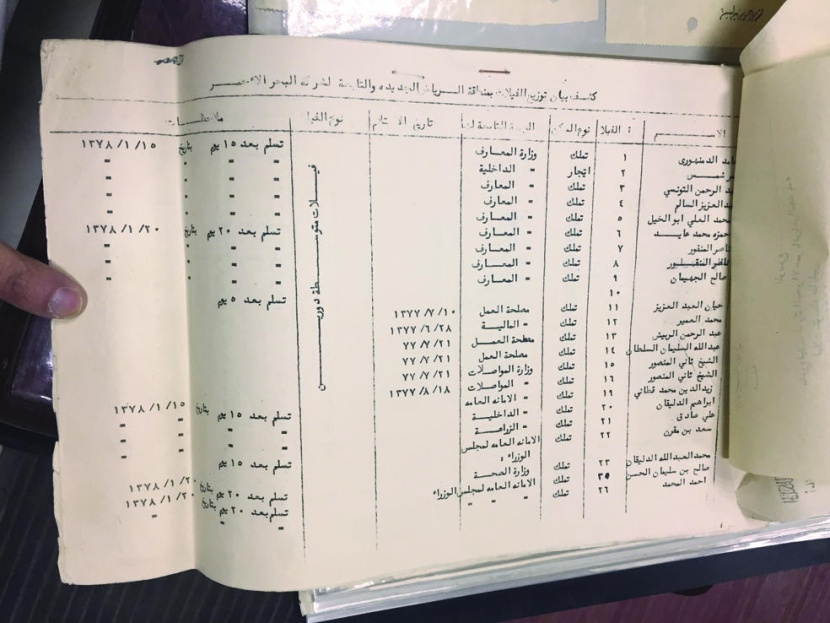 كشف بيان توزيع الفيلات بمنطقة الرياض الجديده والتابعة لشركة البحر الاحمر
الاســـم : الفيلا نوع السكن الجهة التابعة لها تاريخ الاستلام نوع الفيلا ملاحظــات
الدمنهوري ١ تملك وزارة المعارف تسلم بعد ١٥ يوم بتاريخ ١٣٧٨/١/١٥
شمس ٢ ايجار " الداخلية " " "
عبد الرحمن التونسي ٣ تملك " المعارف " " "
عبد العزيز السالم ٤ تملك " المعارف " " "
محمد العلي ابو الخيل ٥ تملك " المعارف " " "
حمزه محمد عابد ٦ تملك " المعارف تسلم بعد ٢٠ يوم بتاريخ ١٣٧٨/١/٢٠
ناصر المنقور ٧ تملك " المعارف " " "
المنقور ٨ تملك " المعارف " " "
صالح الجهيمان ٩ تملك " المعارف " " "
١٠
العبد العزيز ١١ تملك مصلحة العمل ١٣٧٧/٧/١٠ تسلم بعد ٥ يوم
محمد العمير ١٢ تملك " المالية ١٣٧٧/٦/٢٨
عبد الرحمن الربيش ١٣ تملك مصلحة العمــل ٧٧/٧/٢١
عبدالله السليمان السلطان ١٤ تملك مصلحة العمل ٧٧/٧/٢١
الشيخ ثاني المنصور ١٥ تملك وزارة المواصلات ٧٧/٧/٢١
الشيخ ثاني المنصور ١٦ تملك " المواصلات ١٣٧٧/٨/١٨
زيد الدين محمد ١٩ تملك " الامانه العامه
ابراهيم الدليقان ٢٠ تملك " الداخلية تسلم بعد ١٥ يوم بتاريخ ١٣٧٨/١/١٥
علي صادق ٢١ تملك " الزراعة " " "
سعد بن مقرن ٢٢ تملك الامانه العامه لمجلس " " "
الوزراء :
محمد العبد الله الدليقان ٢٣ تملك وزارة الصحة تسلم بعد ١٥ يوم
صالح بن سليمان الحسن تملك الامانه العامه لمجلس الوزراء تسلم بعد ٢٠ يوم بتاريخ ١٣٧٨/١/٢٠
احمد المحمد ٢٦ تملك " " " تسلم بعد ٢٠ يوم بتاريخ ١٣٧٨/١/٢٠
فيــلات متوسطــة دوريــن